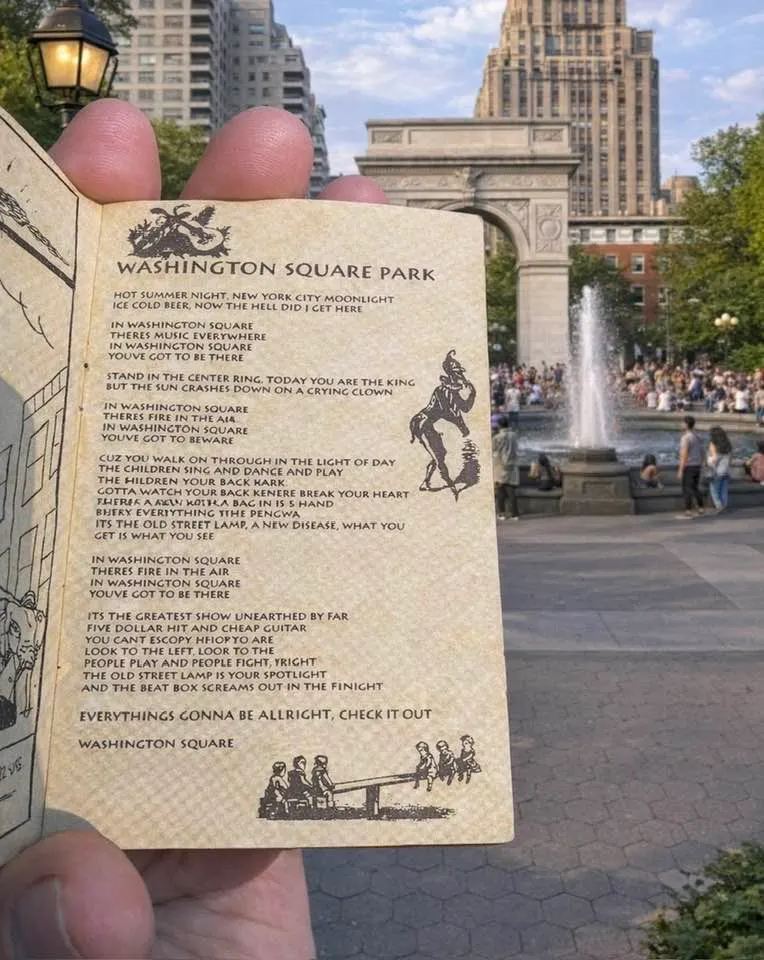 WASHINGTON SQUARE PARK
HOT SUMMER NIGHT, NEW YORK CITY MOONLIGHT
ICE COLD BEER, NOW THE HELL DID I GET HERE
IN WASHINGTON SQUARE
THERES MUSIC EVERYWHERE
IN WASHINGTON SQUARE
YOUVE GOT TO BE THERE
STAND IN THE CENTER RING, TODAY YOU ARE THE KING
BUT THE SUN CRASHES DOWN ON A CRYING CLOWN
IN WASHINGTON SQUARE
THERES FIRE IN THE AIR
IN WASHINGTON SQUARE
YOUVE GOT TO BEWARE
CUZ YOU WALK ON THROUGH IN THE LIGHT OF DAY
THE CHILDREN SING AND DANCE AND PLAY
THE HILDREN YOUR BACK KARK
GOTTA WATCH YOUR BACK KENERE BREAK YOUR HEART
A BAG IN IS S HAND
EVERYTHING TIHE PENGWA
ITS THE OLD STREET LAMP, A NEW DISEASE, WHAT YOU
GET IS WHAT YOU SEE
IN WASHINGTON SQUARE
THERES FIRE IN THE AIR
IN WASHINGTON SQUARE
YOUVE GOT TO BE THERE
ITS THE GREATEST SHOW UNEARTHED BY FAR
FIVE DOLLAR HIT AND CHEAP GUITAR
YOU CANT ESCOPY ARE
LOOK TO THE LEFT, LOOR TO THE
PEOPLE PLAY AND PEOPLE FIGHT, FRIGHT
THE OLD STREET LAMP IS YOUR SPOTLIGHT
AND THE BEAT BOX SCREAMS OUT IN THE FINIGHT
EVERYTHINGS GONNA BE ALLRIGHT, CHECK IT OUT
WASHINGTON SQUARE